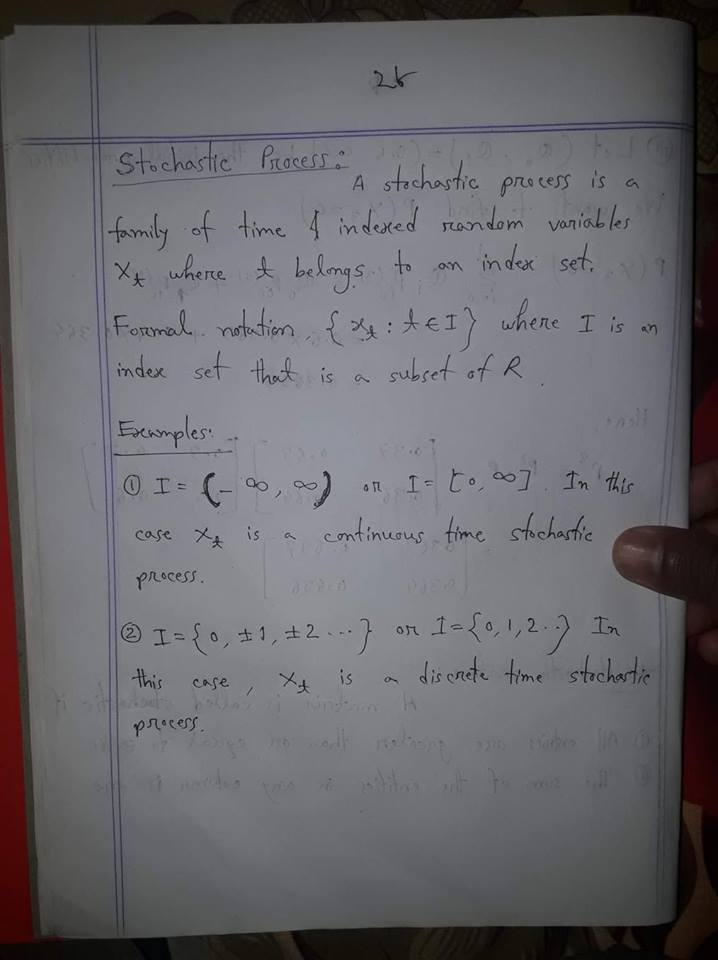 Stochastic Process:
A stochastic process is a
family of time indexed random variables
Xt where t belongs to an index set.
Formal notation, {xt : t ∈ I} where I is an
index set that is a subset of R.
Examples:
① I = (- ∞, ∞) or I = [0, ∞]. In this
case Xt is a continuous time stochastic
process.
② I = {0, ±1, ±2 ...} or I = {0, 1, 2..} In
this case, Xt is a discrete time stochastic
process.